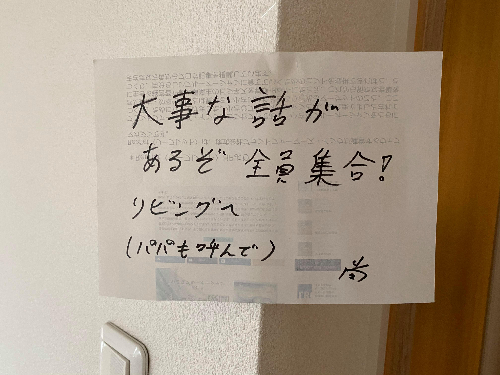 大事な話が
あるぞ 全員集合!
リビングへ
(パパも呼んで)
尚